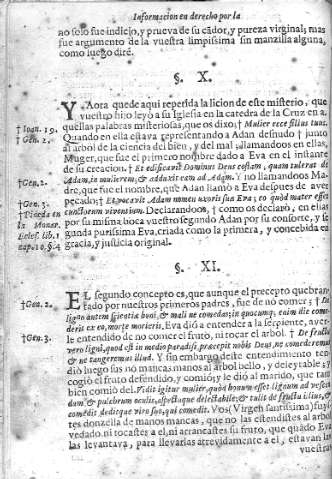 Informacion en derecho por la
no solo fue indicio, y prueva de su cãdor, y pureza virginal; mas
fue argumento de la vuestra limpissima sin manzilla alguna,
como luego diré.
§. X.
Y Aora quede aqui repetida la licion de este misterio, que
vuestro hijo leyò a su Iglesia en la catedra de la Cruz en a-
† Ioan. 19.
quellas palabras misteriosas, que os dixo; † Mulier ecce filius tuus.
† Gen. 2.
Quando en ella estava representando a Adan desnudo † junto
al arbol de la ciencia del bien, y del mal, llamandoos en ellas,
Muger, que fue el primero nombre dado a Eva en el instante
de su creacion; † Et ædificavit Dominus Deus costam, quam tulerat de
† Gen. 2.
Adam, in mulierem, & adduxit eam ad Adam. Y no llamandoos Ma-
dre, que fue el nombre, que Adan llamò a Eva despues de aver
† Gen. 3.
pecado; † Et vocavit Adam nomen uxoris suæ Eva, eo quòd mater esset
† Pineda en
cunctorum viventium. Declarandoos, † como os declarò, en ellas
la Monar.
por su misma boca vuestro segundo Adan por su consorte, y se-
Ecles. lib. 1
gunda purissima Eva, criada como la primera, y concebida en
cap. 10. §. 4
gracia, y justicia original.
§. XI.
EL segundo concepto es, que aunque el precepto quebran-
† Gen. 2.
tado por nuestros primeros padres, fue de no comer; † De
ligno autem scientiæ boni, & mali ne comedas; in quocumq; enim die come-
deris ex eo, morte morieris. Eva diò a entender a la serpiente, aver-
† Gen. 3.
le entendido de no comer el fruto, ni tocar el arbol. † De fructu
verò ligni, quod est in medio paradisi, præcepit nobis Deus, ne comederemus
& ne tangeremus illud. Y sin embargo deste entendimiento ten-
diò luego sus no mancas manos al arbol bello, y deleytable; y
cogiò el fruto defendido, y comiò, y le diò al marido, que tam
bien comiò del. Vidit igitur mulier, quòd bonum esset lignum ad vescen
dum, & pulchrum oculis, aspectuque delectabile; & tulit de fructu illius, &
comedit, deditque viro suo, qui comedit. Vos (Virgen santissima) fuys-
tes donzella de manos mancas, que no las estendistes al arbol
vedado, ni tocastes a el, ni arrancastes su fruto, que quãdo Eva
las levantava, para llevarlas atrevidamente a el, estavan las
vuestras